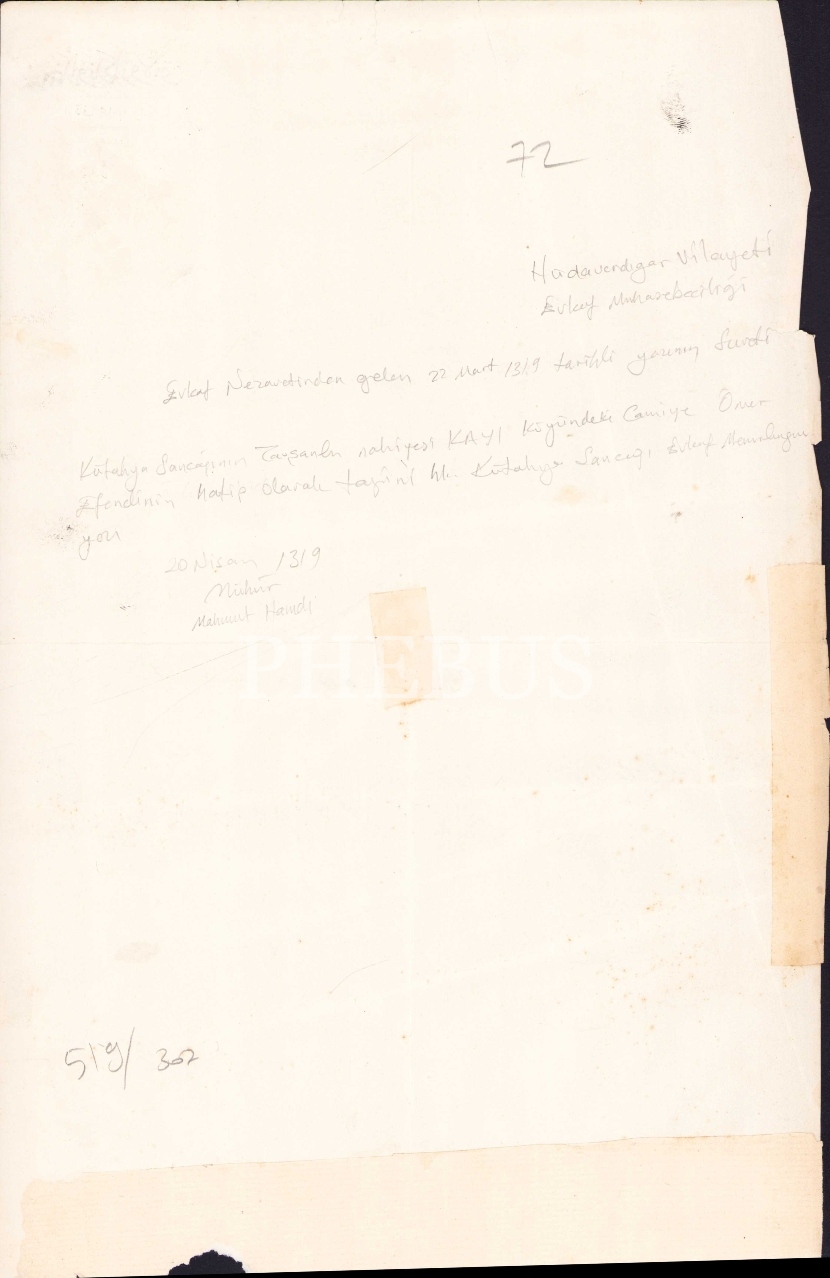 72
Hüdavendigar Vilayeti
Evkaf Muhasebeciliği
Evkaf Nezaretinden gelen 22 Mart 1319 tarihli yazının Sureti
Kütahya Sancağının Tavşanlı nahiyesi KAYI Köyündeki Camiye Ömer
Efendinin Hatip olarak tayini hk. Kütahya Sancağı Evkaf
20 Nisan 1319
Mühür
Mahmut Hamdi
PHEBUS
519/ 302